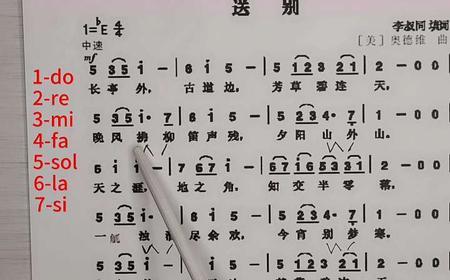 送别
1=♭E 4/4
李叔同 填词
中速
[美] 奥德维 曲
mf
5 3 5 i - | 6 i 5 - | 5 1 2 3 2 1 | 2 - - 0 |
1-do
长亭外, 古道边, 芳草碧连天,
2-re
5 3 5 i· 7 | 6 i 5 - | 5 2 3 4· 7 | 1 - - 0 |
3-mi
晚风拂柳笛声残, 夕阳山外山。
4-fa
6 i i - | 7 6 7 i - | 6 7 i 6 6 5 3 1 | 2 - - 0 |
5-sol
天之涯, 地之角, 知交半零落,
6-la
7-si
5 3 5 i· 7 | 6 i 5 - | 5 2 3 4· 7 | 1 - - 0 |
一 浊 尽余欢, 今宵别梦寒。